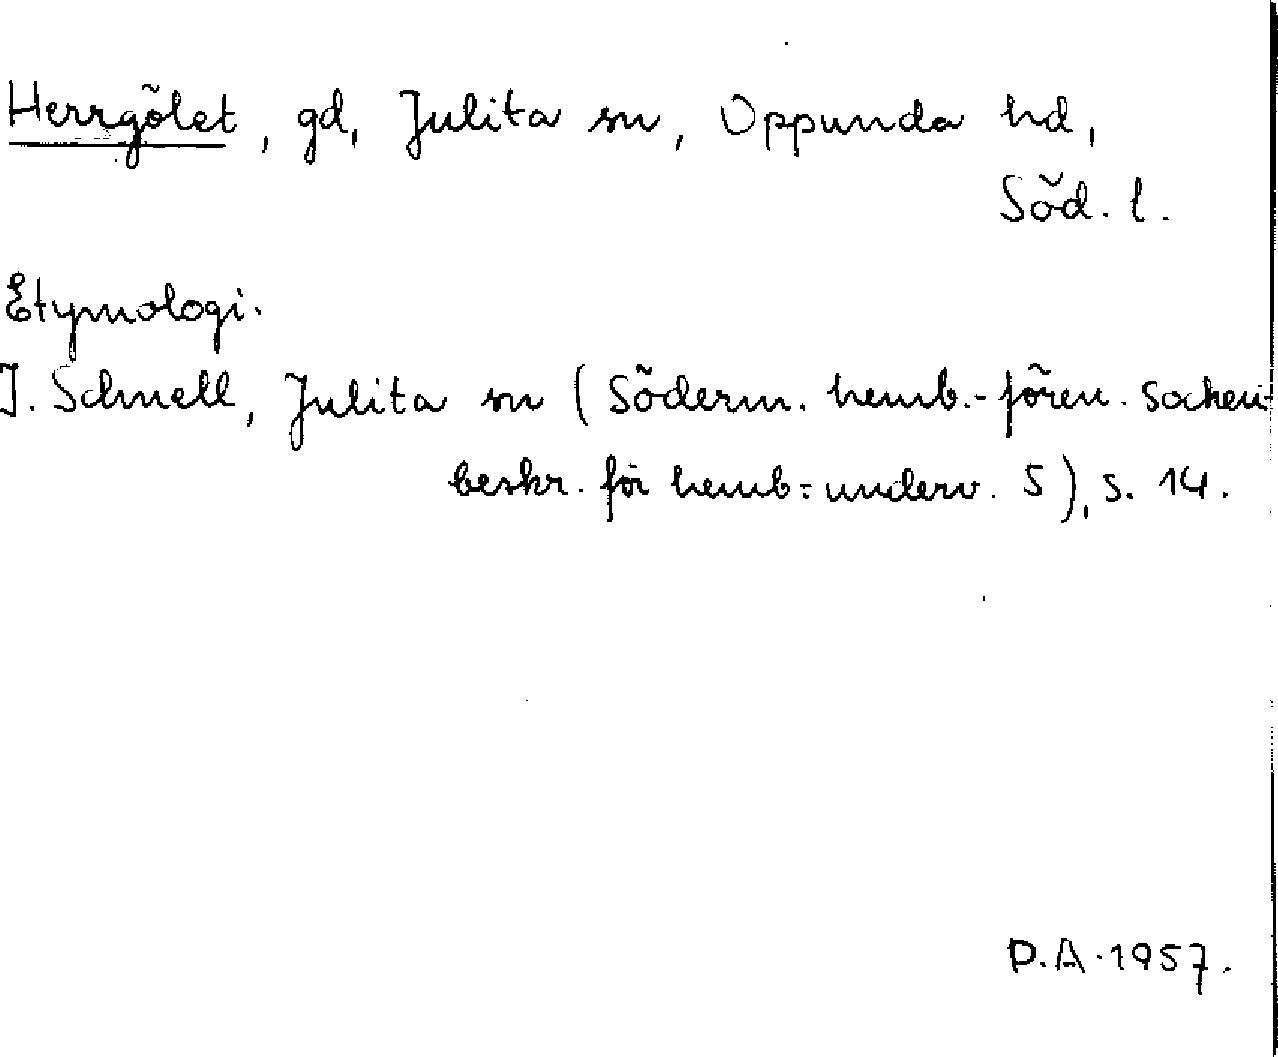 Herrgölet, gd, Julita sn, Oppunda hd,
Söd. l.
Etymologi.
I. Schnell, Julita sn (Söderm. hemb.-fören. Socken-
beskr. för hemb.-underv. 5), s. 14.
D.A. 1957.